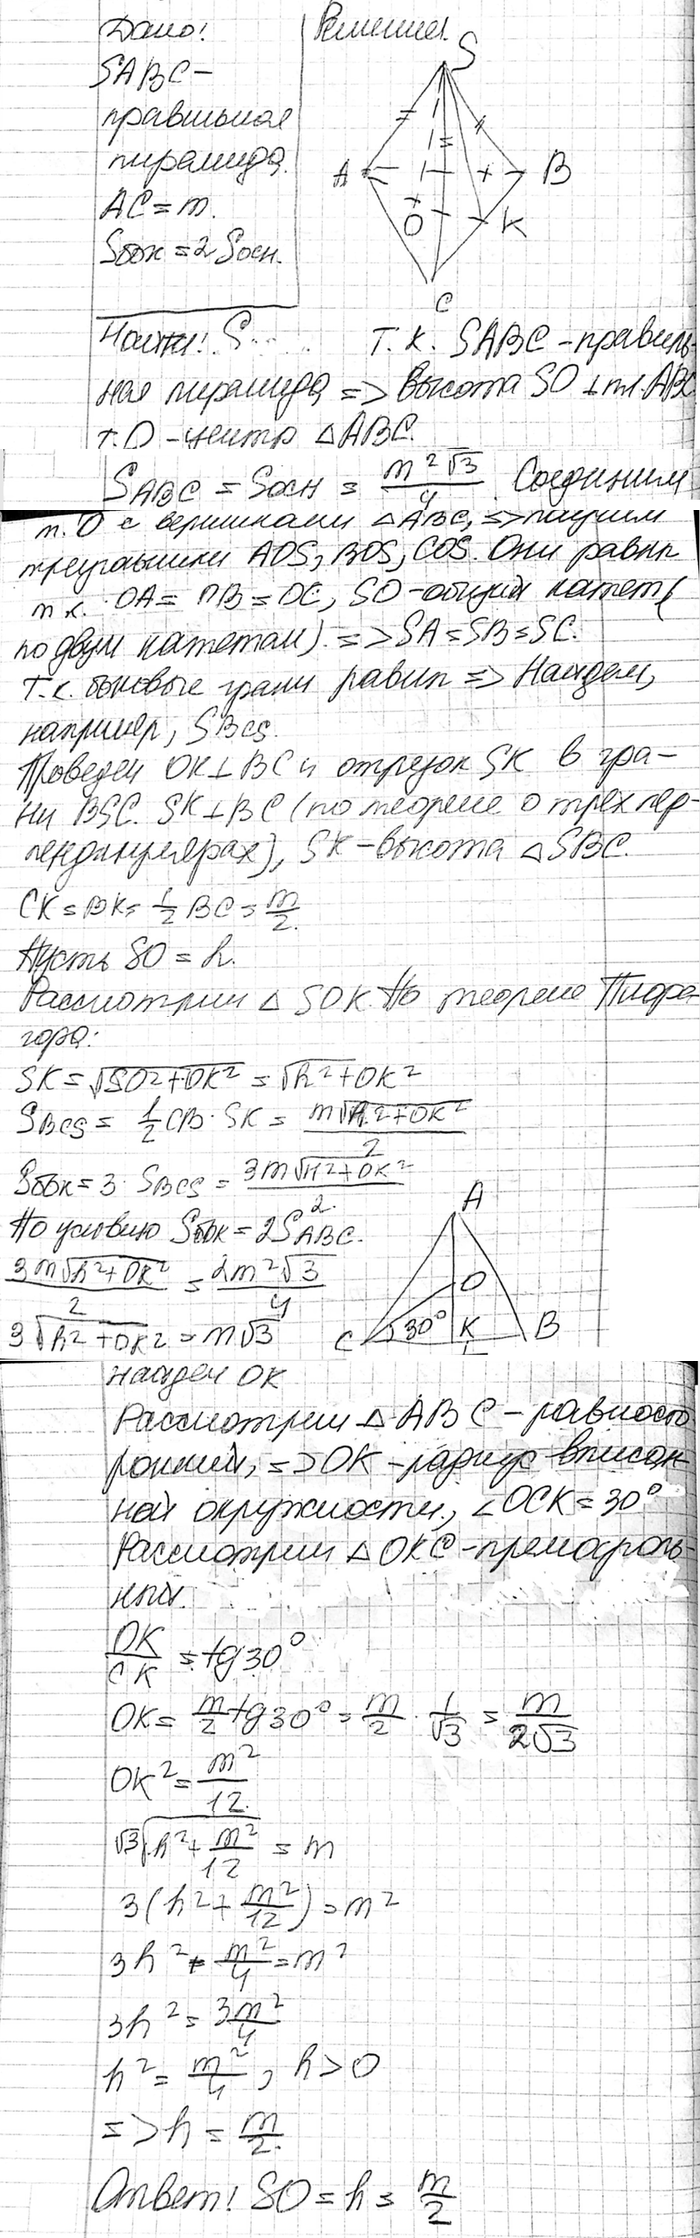 Дано:
Решение:
SABC –
правильная
пирамида.
AC = m.
Sбок = 2 Sосн.
S
A
B
O
K
C
Найти: S..... Т.к. SABC – правиль-
ная пирамида => высота SO ⊥ пл. ABC
т.O – центр △ABC.
SABC = Sосн = m²√3/4. Соединим
т.O с вершинами △ABC, => получим
треугольники AOS, BOS, COS. Они равны
т.к. OA = OB = OC, SO – общий катет (
по двум катетам). => SA = SB = SC.
Т.к. боковые грани равны => Найдем,
например, SBCS.
Проведем OK ⊥ BC и отрезок SK в гра-
ни BSC. SK ⊥ BC (по теореме о трех пер-
пендикулярах), SK – высота △SBC.
CK = BK = 1/2 BC = m/2.
Пусть SO = h.
Рассмотрим △ SOK По теореме Пифа-
гора:
SK = √SO²+OK² = √h²+OK²
SBCS = 1/2 CB · SK = m√h²+OK²/2
Sбок = 3 · SBCS = 3m√h²+OK²/2.
По условию Sбок = 2SABC.
3m√h²+OK²/2 = 2m²√3/4
3√h²+OK² = m√3
A
O
C 30° K B
найдем OK
Рассмотрим △ABC – равносто
ронний, => OK – радиус вписан
ной окружности, ∠OCK = 30°
Рассмотрим △OKC – прямоуголь-
ный.
OK/CK = tg30°
OK = m/2 tg30° = m/2 · 1/√3 = m/2√3
OK² = m²/12.
√3√h²+m²/12 = m
3(h²+m²/12) = m²
3h² + m²/4 = m²
3h² = 3m²/4
h² = m²/4, h > 0
=> h = m/2.
Ответ: SO = h = m/2